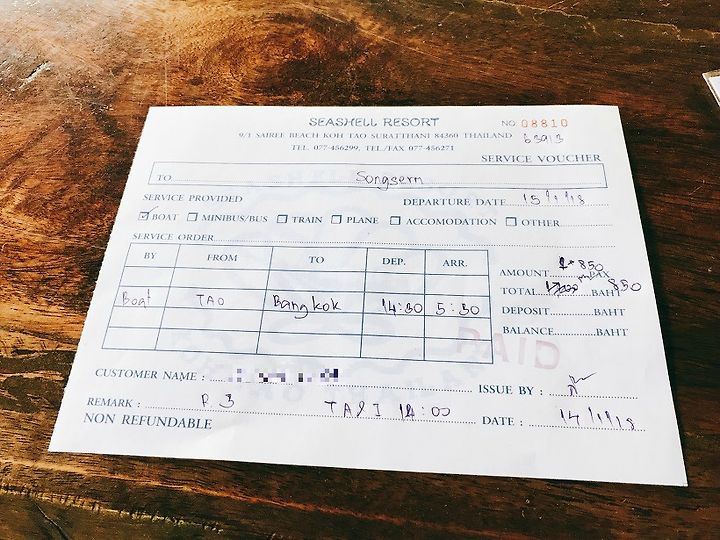 SEASHELL RESORT
NO. 08810
9/1 SAIREE BEACH KOH TAO SURATTHANI 84360 THAILAND
63913
TEL. 077-456299, TEL./FAX 077-456271
SERVICE VOUCHER
TO Songserm
SERVICE PROVIDED DEPARTURE DATE 15/1/18
BOAT MINIBUS/BUS TRAIN PLANE ACCOMODATION OTHER
SERVICE ORDER
BY FROM TO DEP. ARR.
Boat TAO Bangkok 14:30 5:30
AMOUNT 850 PAX
TOTAL 850 BAHT
DEPOSIT BAHT
BALANCE BAHT
PAID
CUSTOMER NAME :
ISSUE BY :
REMARK : P 3 TAXI 14:00
DATE : 14/1/18
NON REFUNDABLE